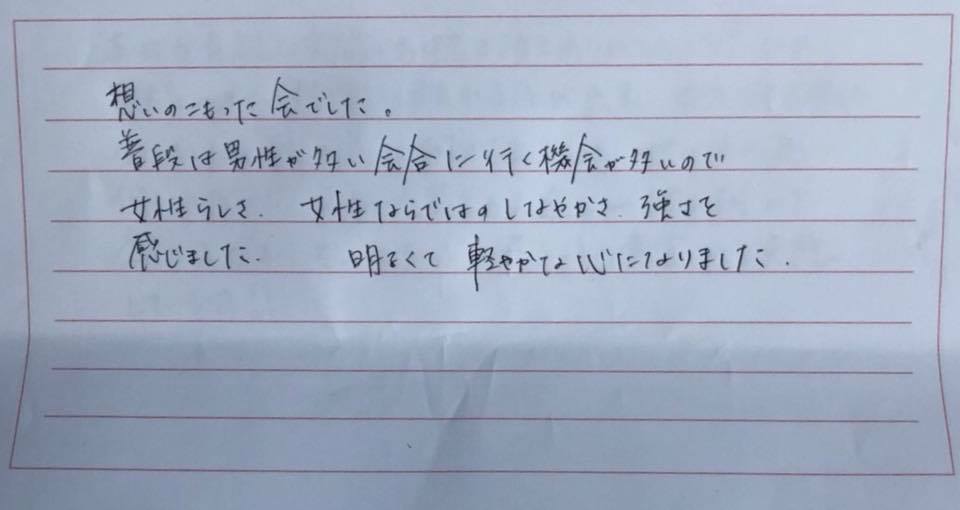 想いのこもった会でした。
普段は男性が多い会合に行く機会が多いので
女性らしさ、女性ならではのしなやかさ、強さを
感じました。 明るくて軽やかな心になりました。